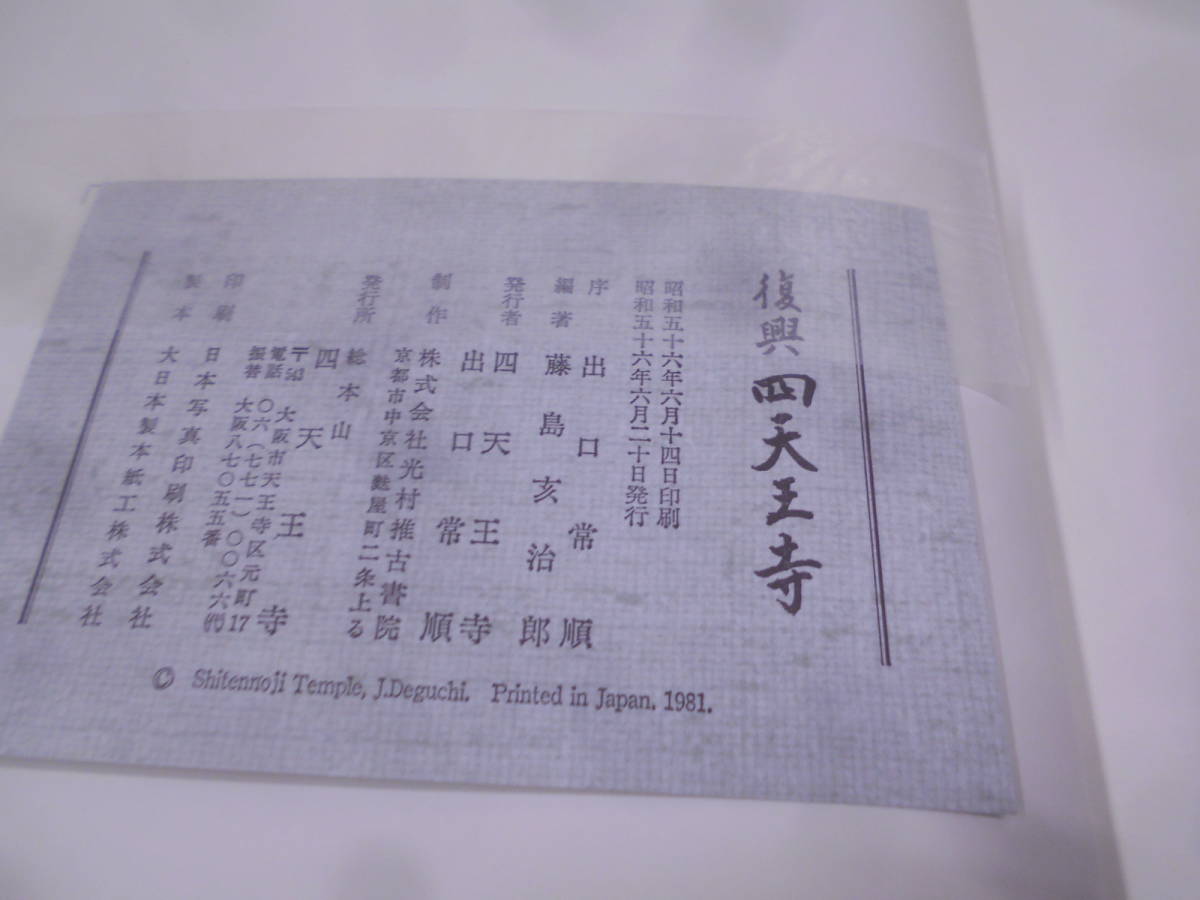 復興 四天王寺
昭和五十六年六月十四日印刷
昭和五十六年六月二十日発行
序 出口常順
編著 藤島亥治郎
発行者 四天王寺
出口常順
制作 株式会社光村推古書院
京都市中京区麩屋町二条上る
発行所 総本山
四天王寺
〒543 大阪市天王寺区元町17
電話 〇六(七七一)〇〇六六㈹
振替 大阪八七〇五五番
印刷 日本写真印刷株式会社
製本 大日本製本紙工株式会社
© Shitennoji Temple, J.Deguchi. Printed in Japan. 1981.